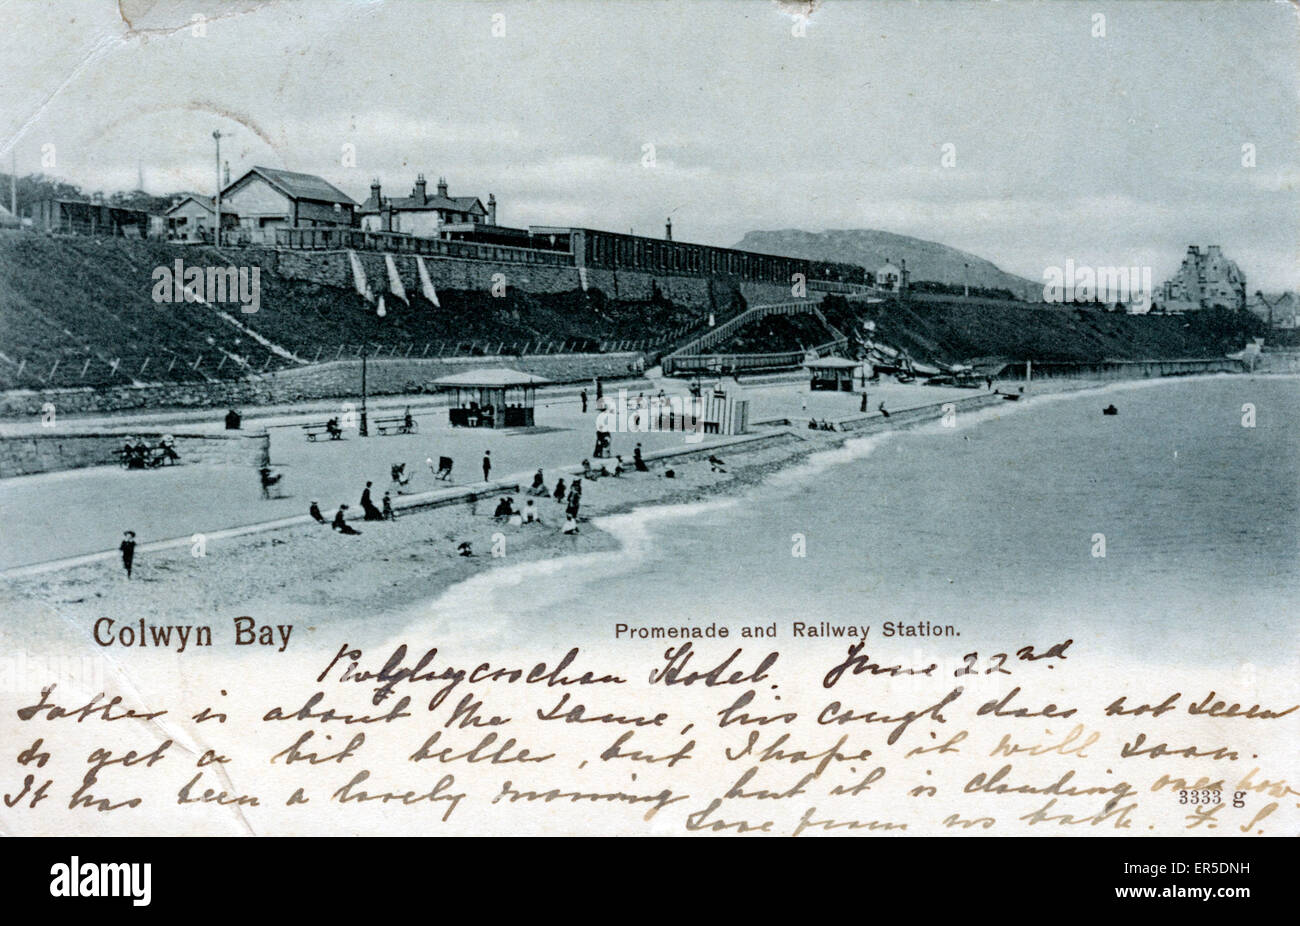 Colwyn Bay
Promenade and Railway Station.
Hotel. June 22nd
Father is about the same, his cough does not seem
to get a bit better, but I hope it will soon.
It has been a lovely morning but it is clouding over now.
3333 g
Love from us both. F. S.
alamy
Image ID: ER5DNH
www.alamy.com